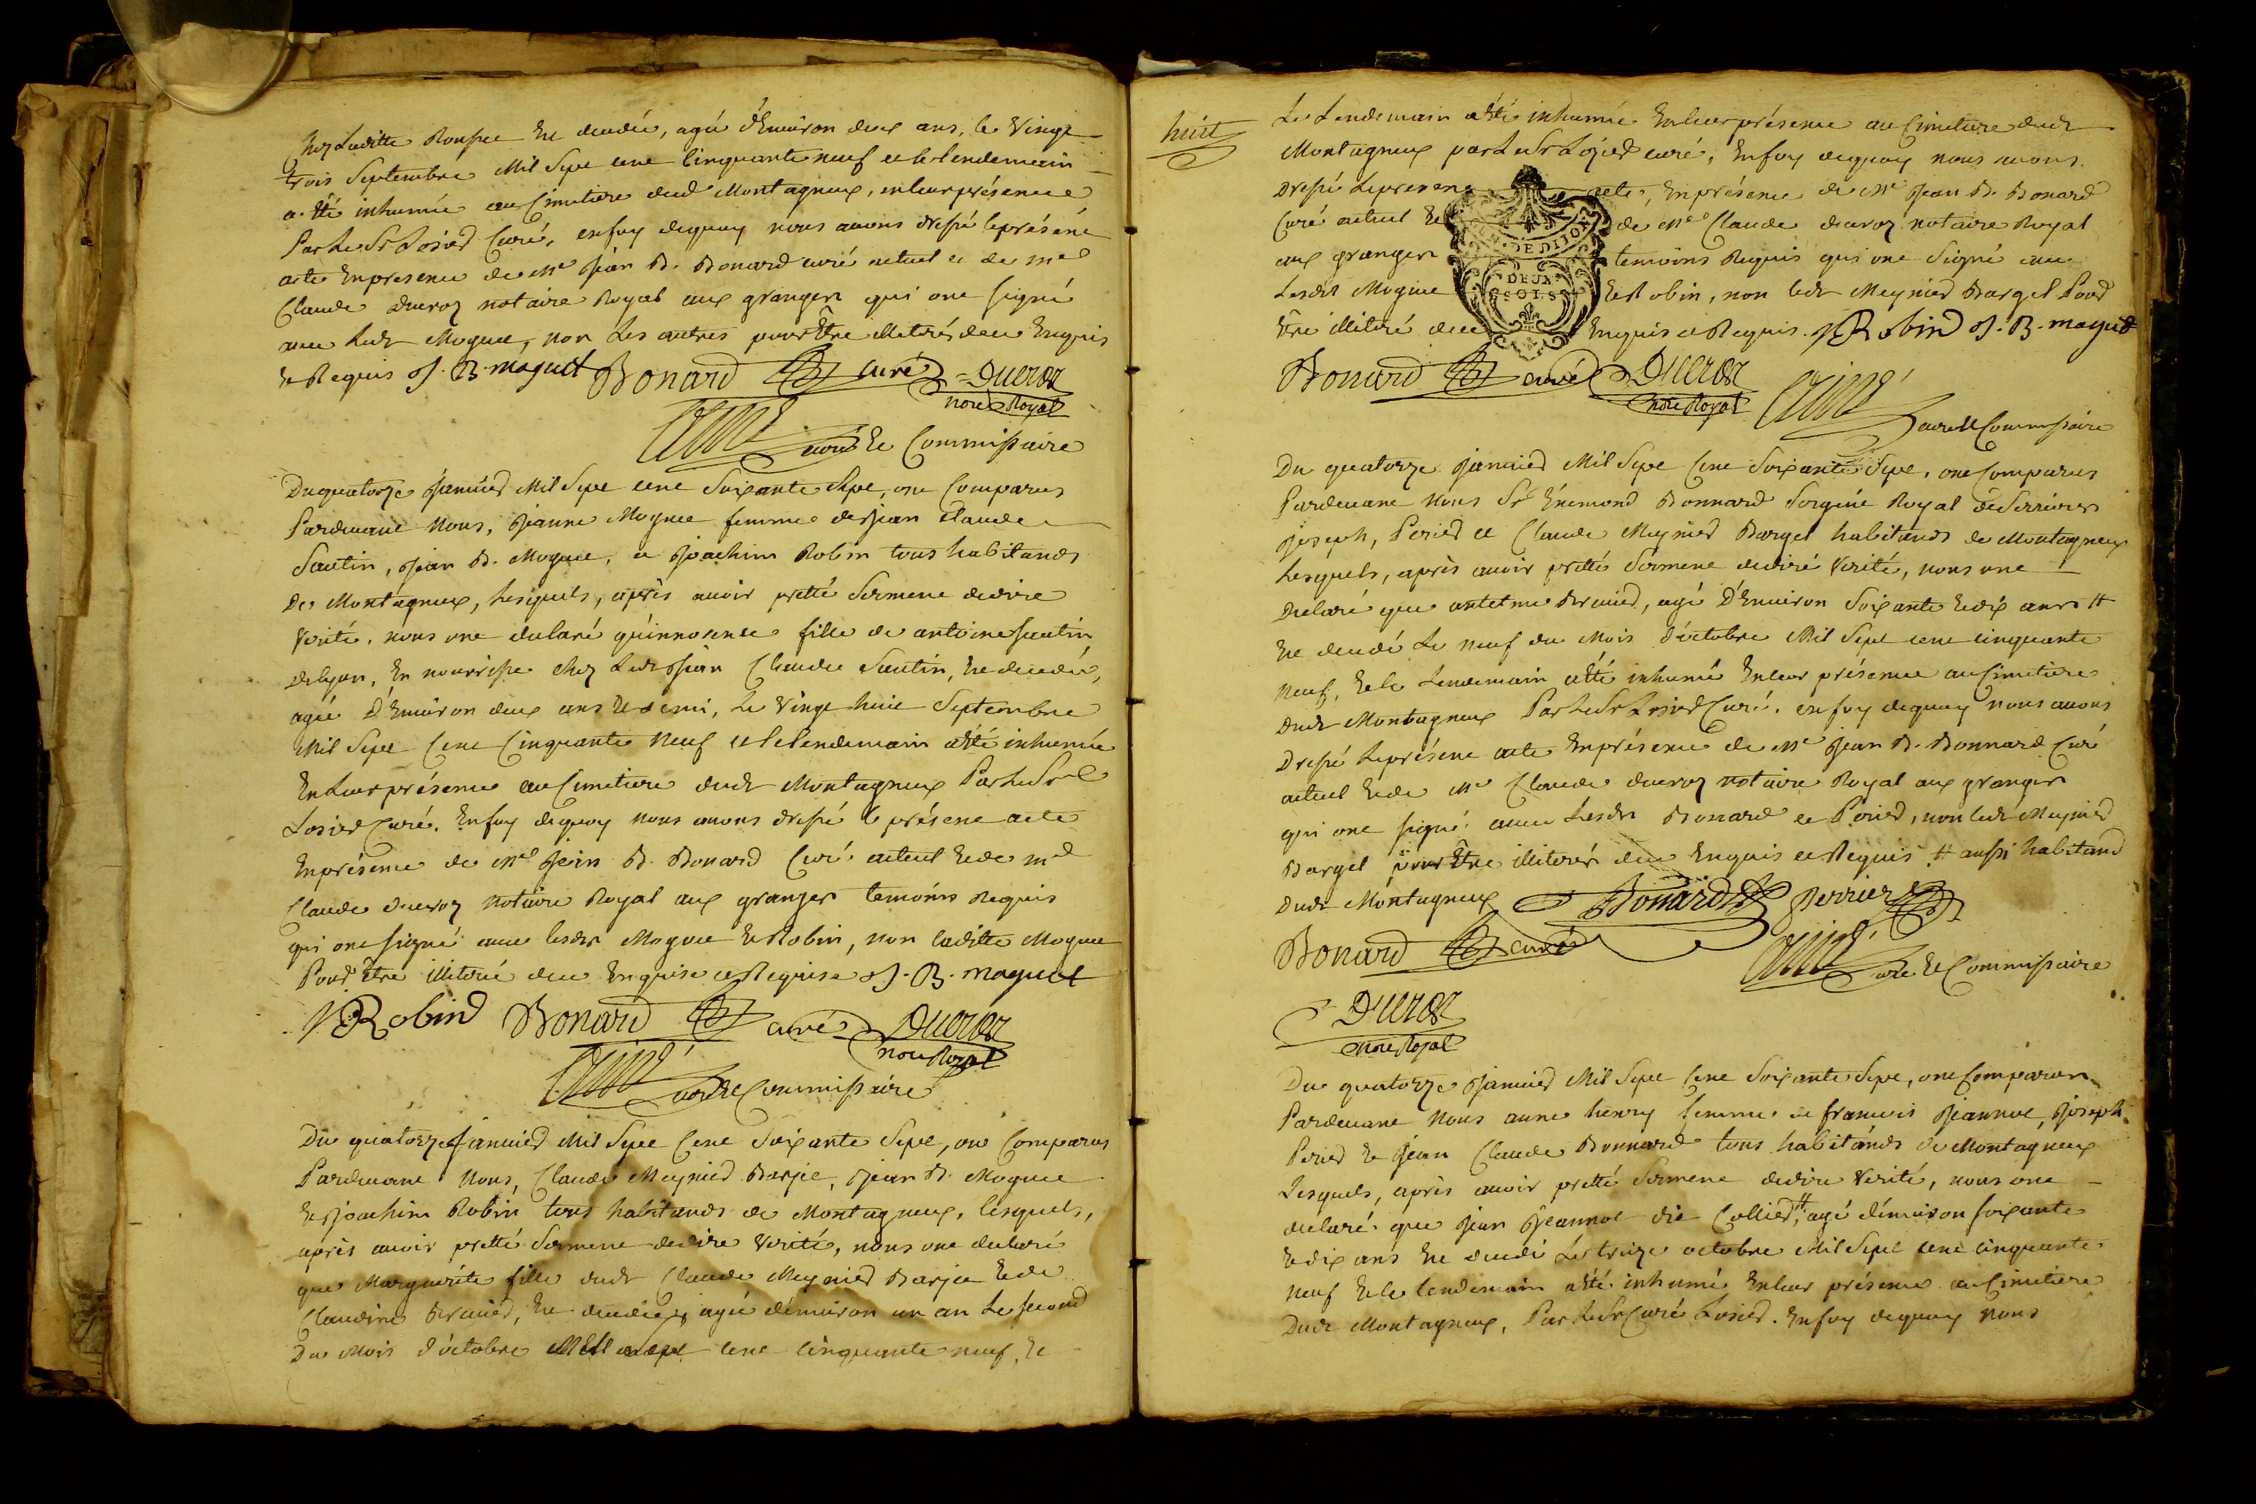 Chez Laditte Rousset Est deceddée, agée d'Environ deux ans, le Vingt
trois Septembre Mil Sept cent Cinquante neuf et le lendemain
a Eté inhumée au Cimetiere dud Montagneux, en leur présence
Par Le Sr Losier Curé, en foy dequoy nous avons dressé le présent
acte En presence de Me Jean B. Bonard curé actuel et de Me
Claude Ducroz notaire Royal aux granges qui ont signé
avec Ledt Moguet, non Les autres pour Être illitérés deu Enquis
Et Requis J. B. moguet Bonard curé Ducroz
nore Royal
curé Et Commissaire
Du quatorze Janvier Mil Sept cent Soixante Sept, ont Comparus
Pardevant Nous, Jeanne Moguet femme de Jean Claude
Santin, Jean B. Moguet, et Joachim Robin tous habitants
De Montagneux, Lesquels, après avoir pretté Serment de dire
Verité, nous ont declaré qu'innosente fille de antoine Santin
de lyon, En nourrisse chez Ledt Jean Claude Santin, Est decedée,
agée D'Environ deux ans Et demi, Le Vingt huit Septembre
Mil Sept Cent Cinquante Neuf et le lendemain a Eté inhumée
En Leur présence au Cimetiere dudt Montagneux Par Le Sr
Losier Curé. En foy dequoy nous avons dressé le présent acte
En présence de Me Jean B. Bonard Curé actuel Et de Me
Claude Ducroz Notaire Royal aux granges temoins Requis
qui ont signé avec lesdts Moguet Et Robin, non laditte Moguet
Pour Être illiterée deu Enquise et Requise J. B. moguet
J Robin Bonard curé Ducroz
nore Royal
curé Et Commissaire
Du quatorze Janvier Mil Sept Cent Soixante Sept, ont Comparus
Pardevant Nous, Claude Meynier Barjet, Jean B. Moguet
Et Joachim Robin tous habitants de Montagneux, lesquels,
après avoir pretté Serment de dire Verité, nous ont declaré
que Marguerite fille dudt Claude Meynier Barjet Et de
Claudine Brevier, Est decedée, agée d'environ un an Le second
Du Mois d'octobre Mil Sept cent Cinquante neuf, Et
huit
Le Lendemain a Eté inhumée En leur présence au Cimetiere dudt
Montagneux par Le Sr Losier curé, En foy dequoy nous avons
Dressé Le present acte, En présence de Me Jean B. Bonard
Curé actuel Et de Me Claude Ducroz notaire Royal
aux granges temoins Requis qui ont Signé avec
Lesdts Moguet Et Robin, non ledt Meynier Barget Pour
Être illiteré deu Enquis et Requis. J Robin J. B. moguet
GEN. DE DIJON
DEUX
SOLS
Bonard curé Ducroz
nore Royal
curé Et Commissaire
Du quatorze Janvier Mil Sept Cent Soixante Sept, ont Comparus
Pardevant Nous Sr Enemond Bonnard Sergent Royal de Serrieres
Joseph, Perier et Claude Meynier Barget habitants de Montagneux
Lesquels, après avoir pretté Serment de dire Verité, nous ont
Declaré que antelme Brevier, agé D'Environ Soixante Et dix ans #
Est decedé Le neuf du Mois d'octobre Mil Sept cent cinquante
Neuf, Et le Lendemain a Eté inhumé En leur présence au Cimetiere
Dudt Montagneux Par Le Sr Losier Curé. en foy dequoy nous avons
Dressé Le présent acte En présence de Me Jean B. Bonnard Curé
actuel Et de Me Claude Ducroz notaire Royal aux granges
qui ont signé avec Lesdts Bonard et Perier, non ledt Meynier
Barget pour Être illiterés deu Enquis et Requis # aussi habitant
Dudt Montagneux Bonard Perrier
Bonard curé
curé Et Commissaire
Ducroz
nore Royal
Du quatorze Janvier Mil Sept Cent Soixante Sept, ont Comparus
Pardevant Nous anne henry femme de francois Jeannot, Joseph
Perier Et Jean Claude Bonnard tous habitants de Montagneux
Lesquels, après avoir pretté Serment de dire Verité, nous ont
declaré que Jean Jeannot dit Collier,# agé d'environ soixante
Et dix ans Est decedé Le treize octobre Mil Sept cent cinquante
Neuf Et le lendemain a Eté inhumé En leur présence au Cimetiere
Dudt Montagneux, Par Le Sr Curé Losier. En foy dequoy nous